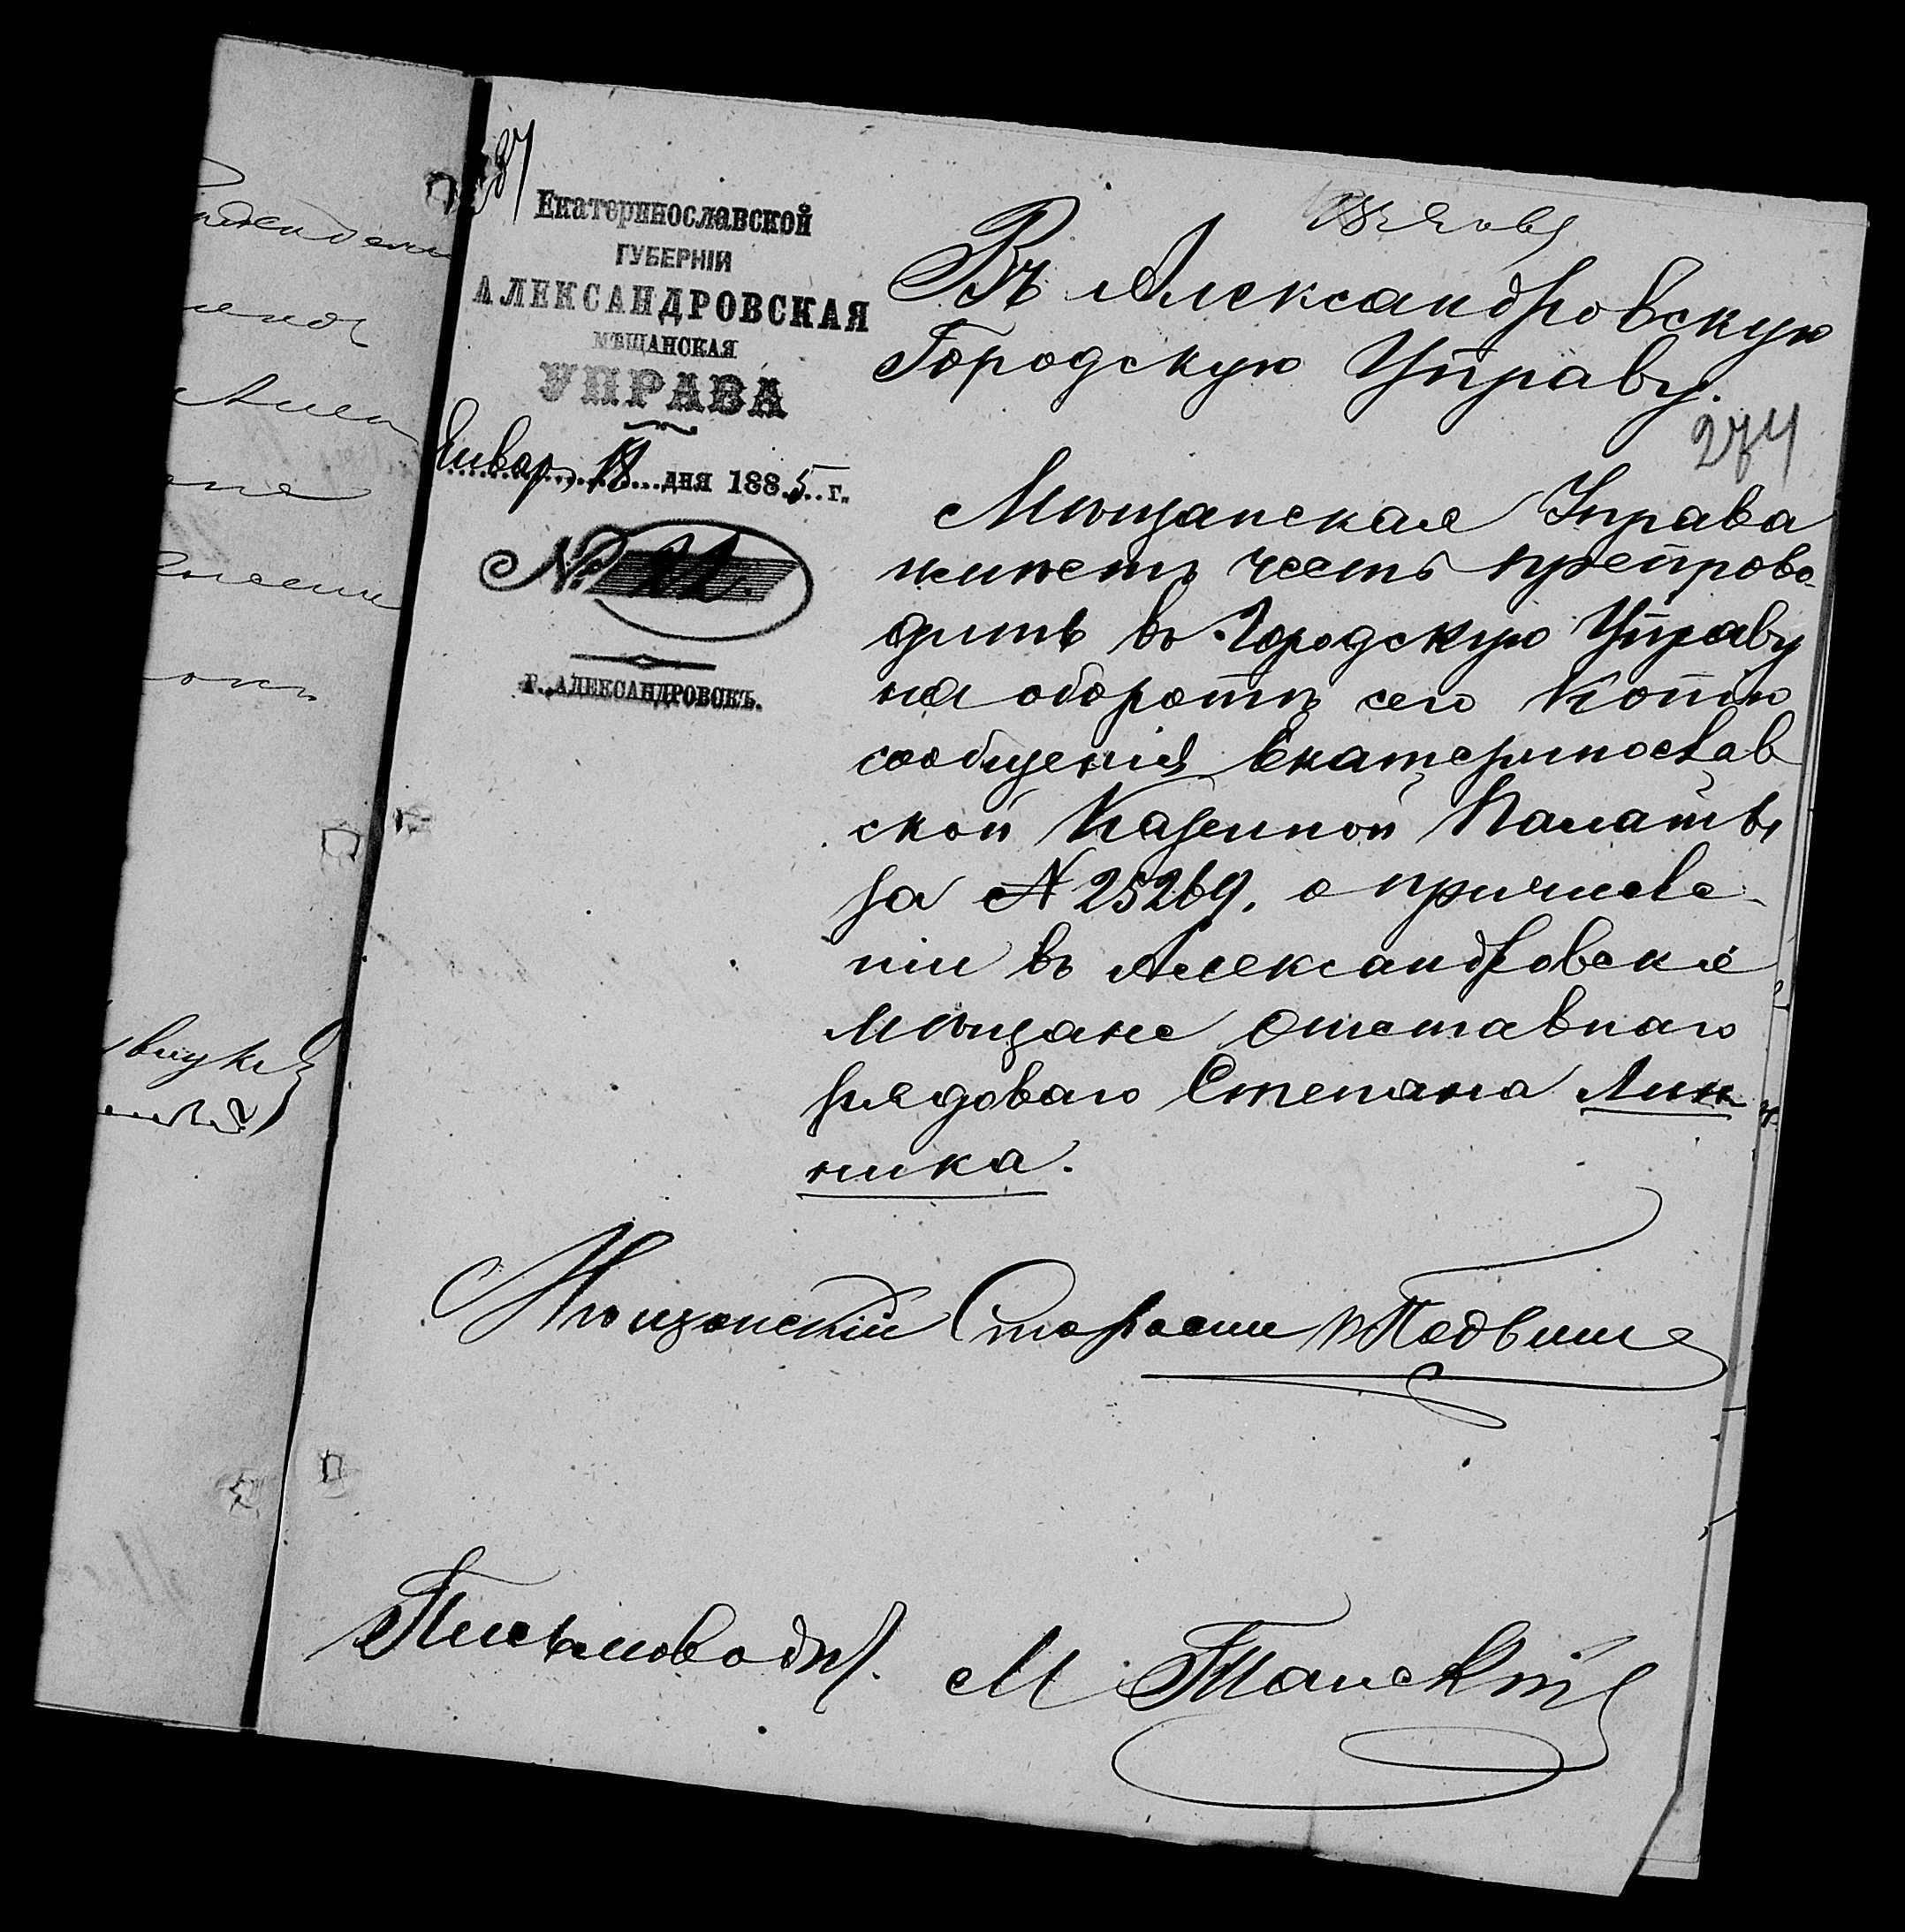 Екатеринославской
ГУБЕРНІИ
АЛЕКСАНДРОВСКАЯ
МѢЩАНСКАЯ
УПРАВА
Январ 18 дня 1885 г.
№
Г. АЛЕКСАНДРОВСКЪ.
Въ Александровскую
Городскую Управу.
274
Мѣщанская Управа
имѣетъ честь препрово-
дить въ Городскую Управу
на оборотѣ сего копію
сообщенія Екатеринослав
ской Казенной Палаты
за № 25269. о причисле-
ніи въ Александровскіе
мѣщане отставнаго
рядоваго Степана Лин
ника.
Мѣщанскій Староста
Письмовод.
М